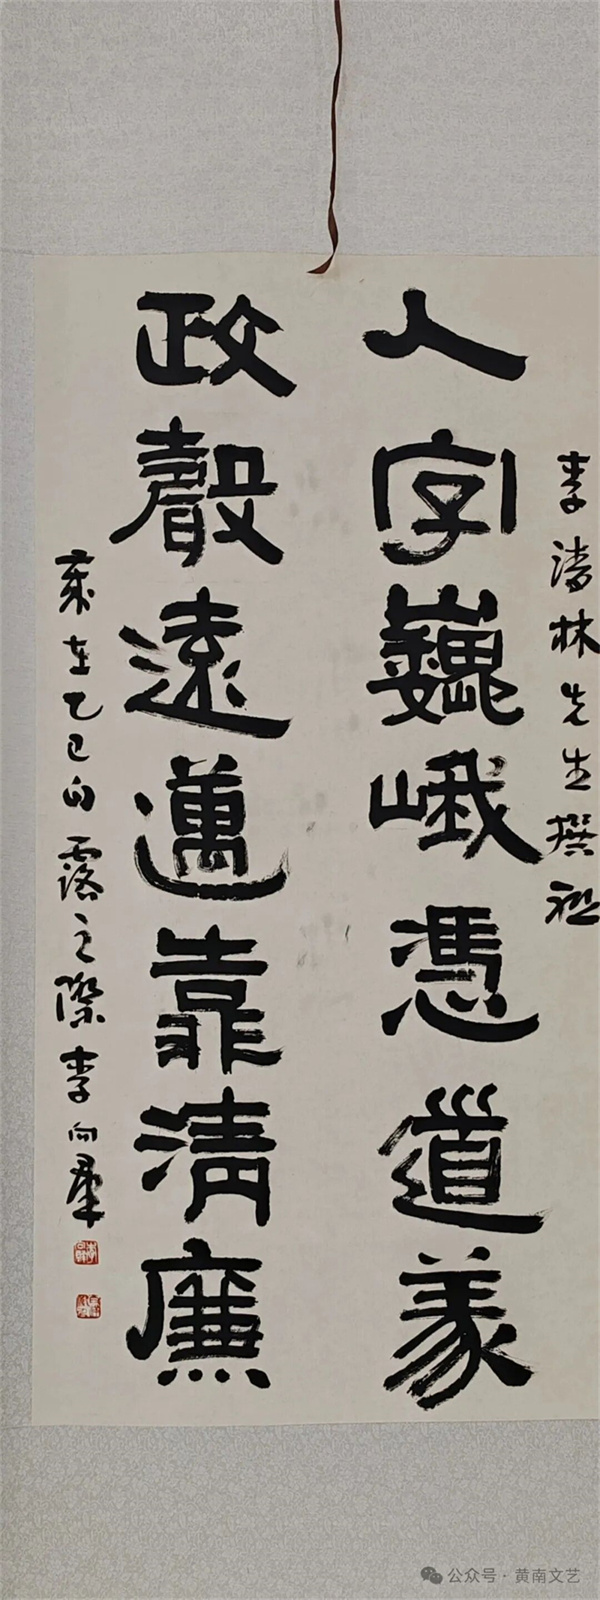 李林先生撰
人字巍峨憑道義
政聲遠邁靠清廉
歲在乙巳白露之際李向羣
公众号·黄南文艺